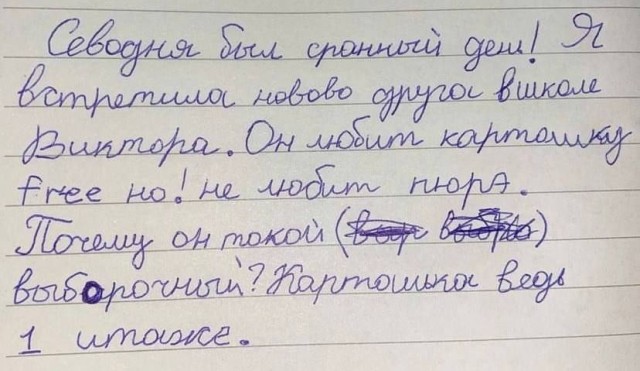 Севодня был сранный ден! Я
встретила новово друга вшколе
Виктора. Он любит картошку
free но! не любит пюрэ.
Почему он токой (
выборочный? Картошка ведь
1 итаже.